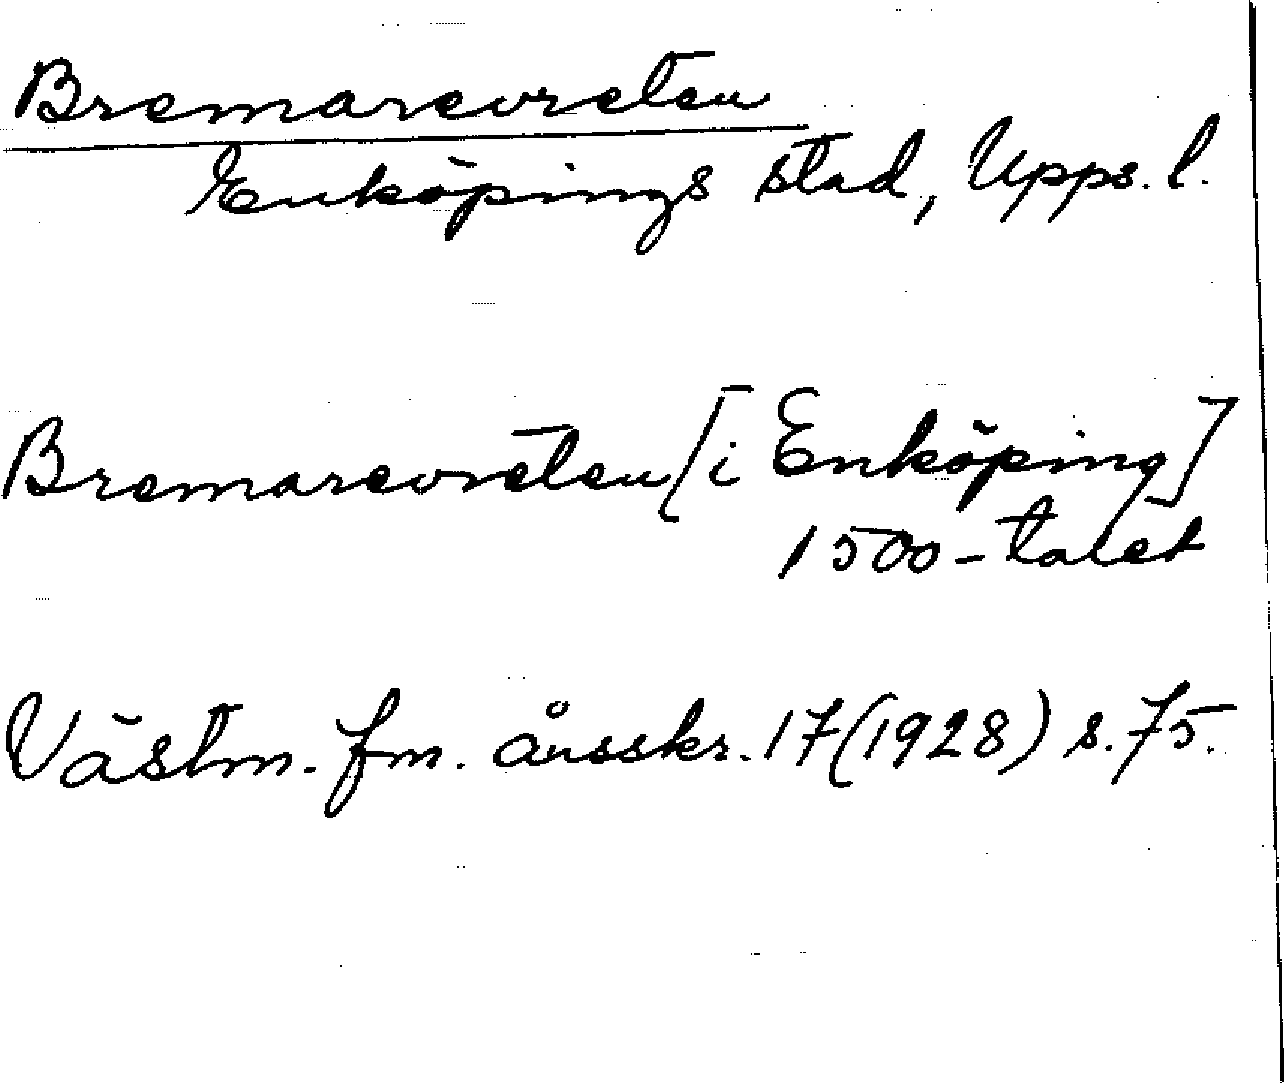 Bremarevreten
Enköpings stad, Upps. l.
Bremarevreten [i Enköping]
1500-talet
Västm. fm. årsskr. 17 (1928) s. 75.